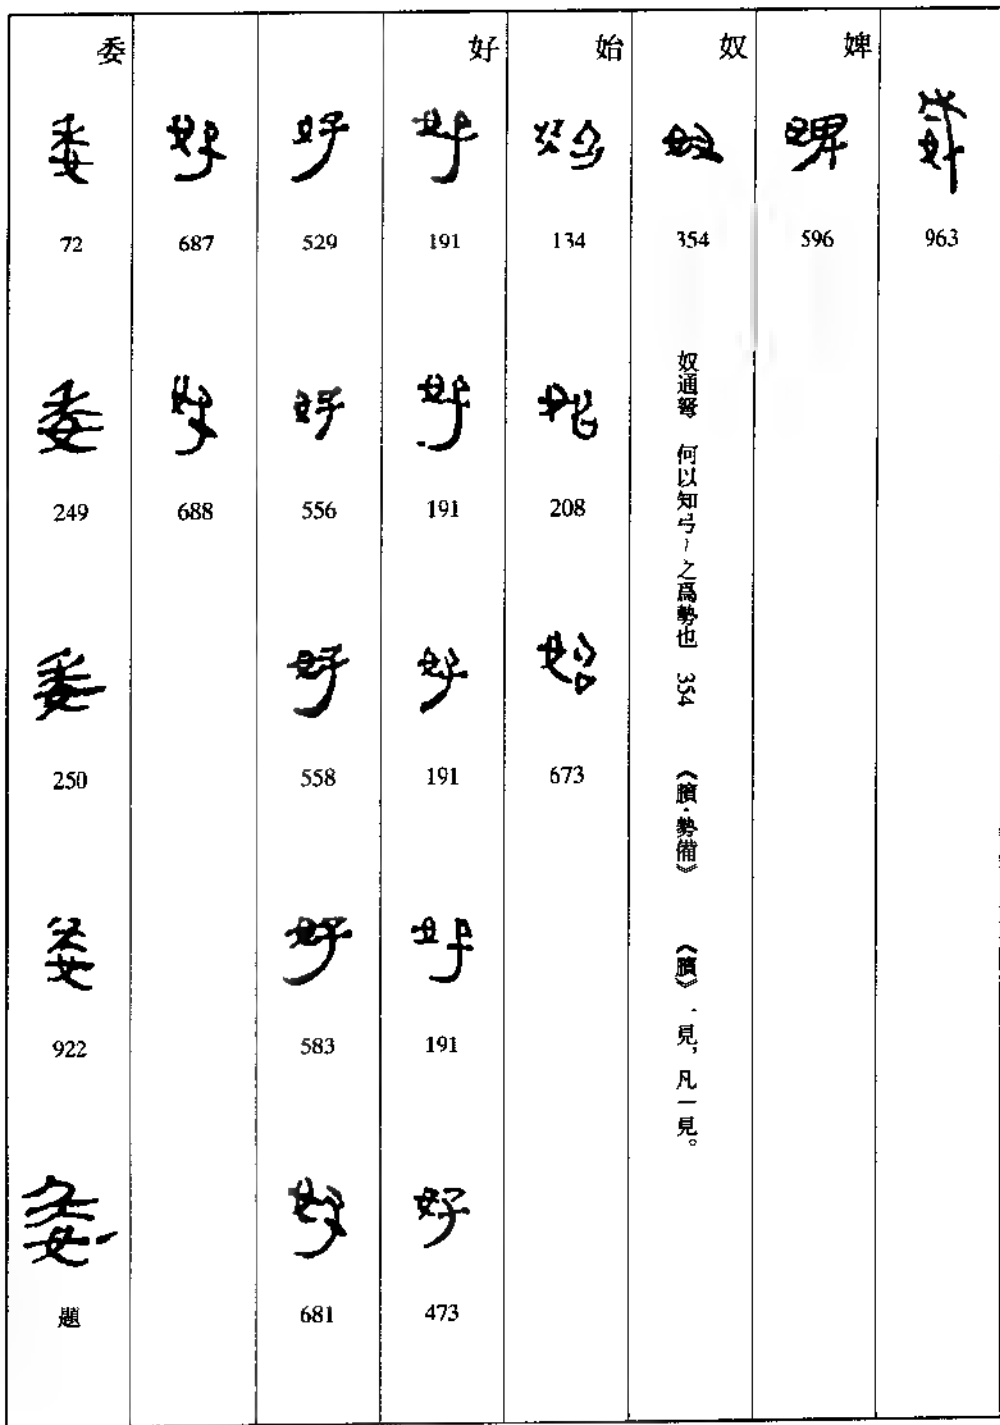 963
婢
596
奴
354
奴通弩 何以知弓~之爲勢也 354 《臏·勢備》 《臏》一見，凡一見。
始
134
208
673
好
191
191
191
191
473
529
556
558
583
681
687
688
委
72
249
250
922
題